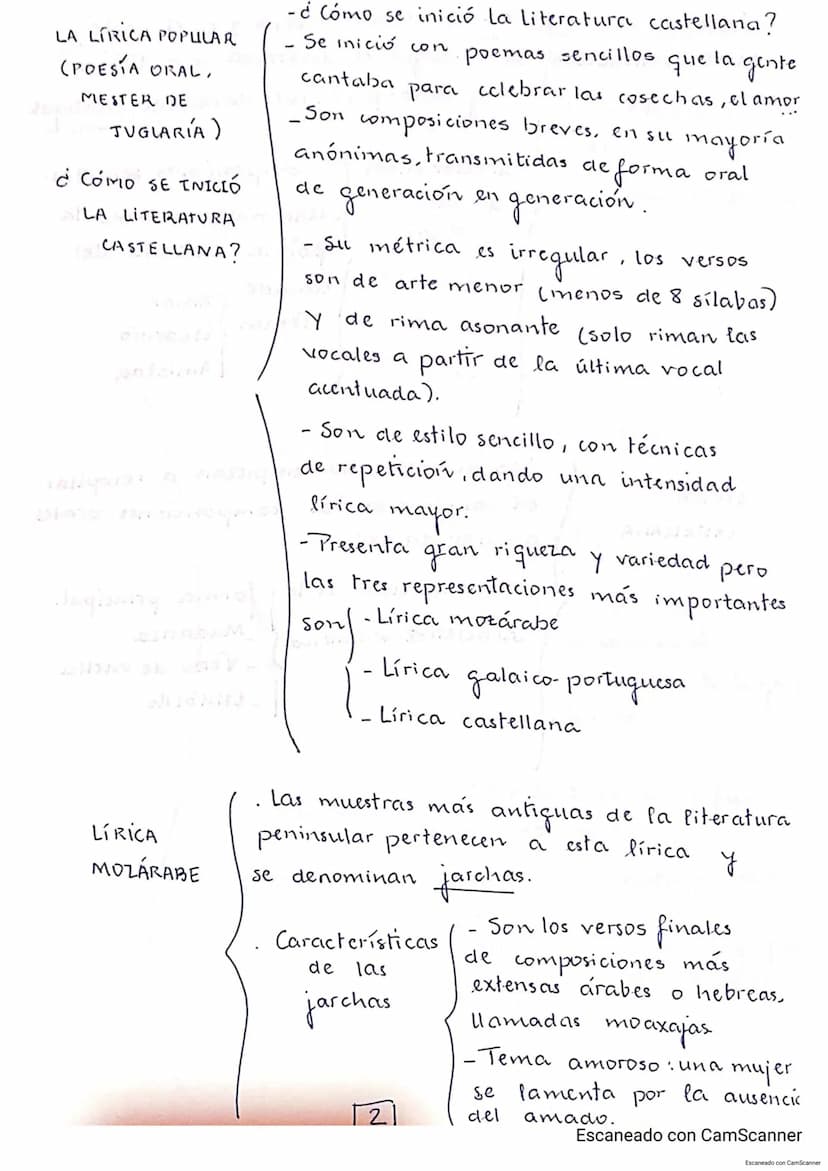 LA LÍRICA POPULAR
(POESÍA ORAL,
MESTER DE
JUGLARÍA)
¿CÓMO SE INICIÓ
LA LITERATURA
CASTELLANA?
-¿Cómo se inició la literatura castellana?
- Se inició con poemas sencillos que la gente
cantaba para celebrar las cosechas, el amor...
- Son composiciones breves, en su mayoría
anónimas, transmitidas de forma oral
de generación en generación.
- Su métrica es irregular, los versos
son de arte menor (menos de 8 sílabas)
Y de rima asonante (solo riman las
vocales a partir de la última vocal
acentuada).
- Son de estilo sencillo, con técnicas
de repetición, dando una intensidad
lírica mayor.
- Presenta gran riqueza y variedad pero
las tres representaciones más importantes
son - Lírica mozárabe
- Lírica galaico-portuguesa
- Lírica castellana
LÍRICA
MOZÁRABE
. Las muestras más antiguas de la literatura
peninsular pertenecen a esta lírica y
se denominan jarchas.
. Características
de las
jarchas
- Son los versos finales
de composiciones más
extensas árabes o hebreas,
llamadas moaxajas
- Tema amoroso: una mujer
se lamenta por la ausenci
del amado.
2
Escaneado con CamScanner
Escaneado con CamScanner